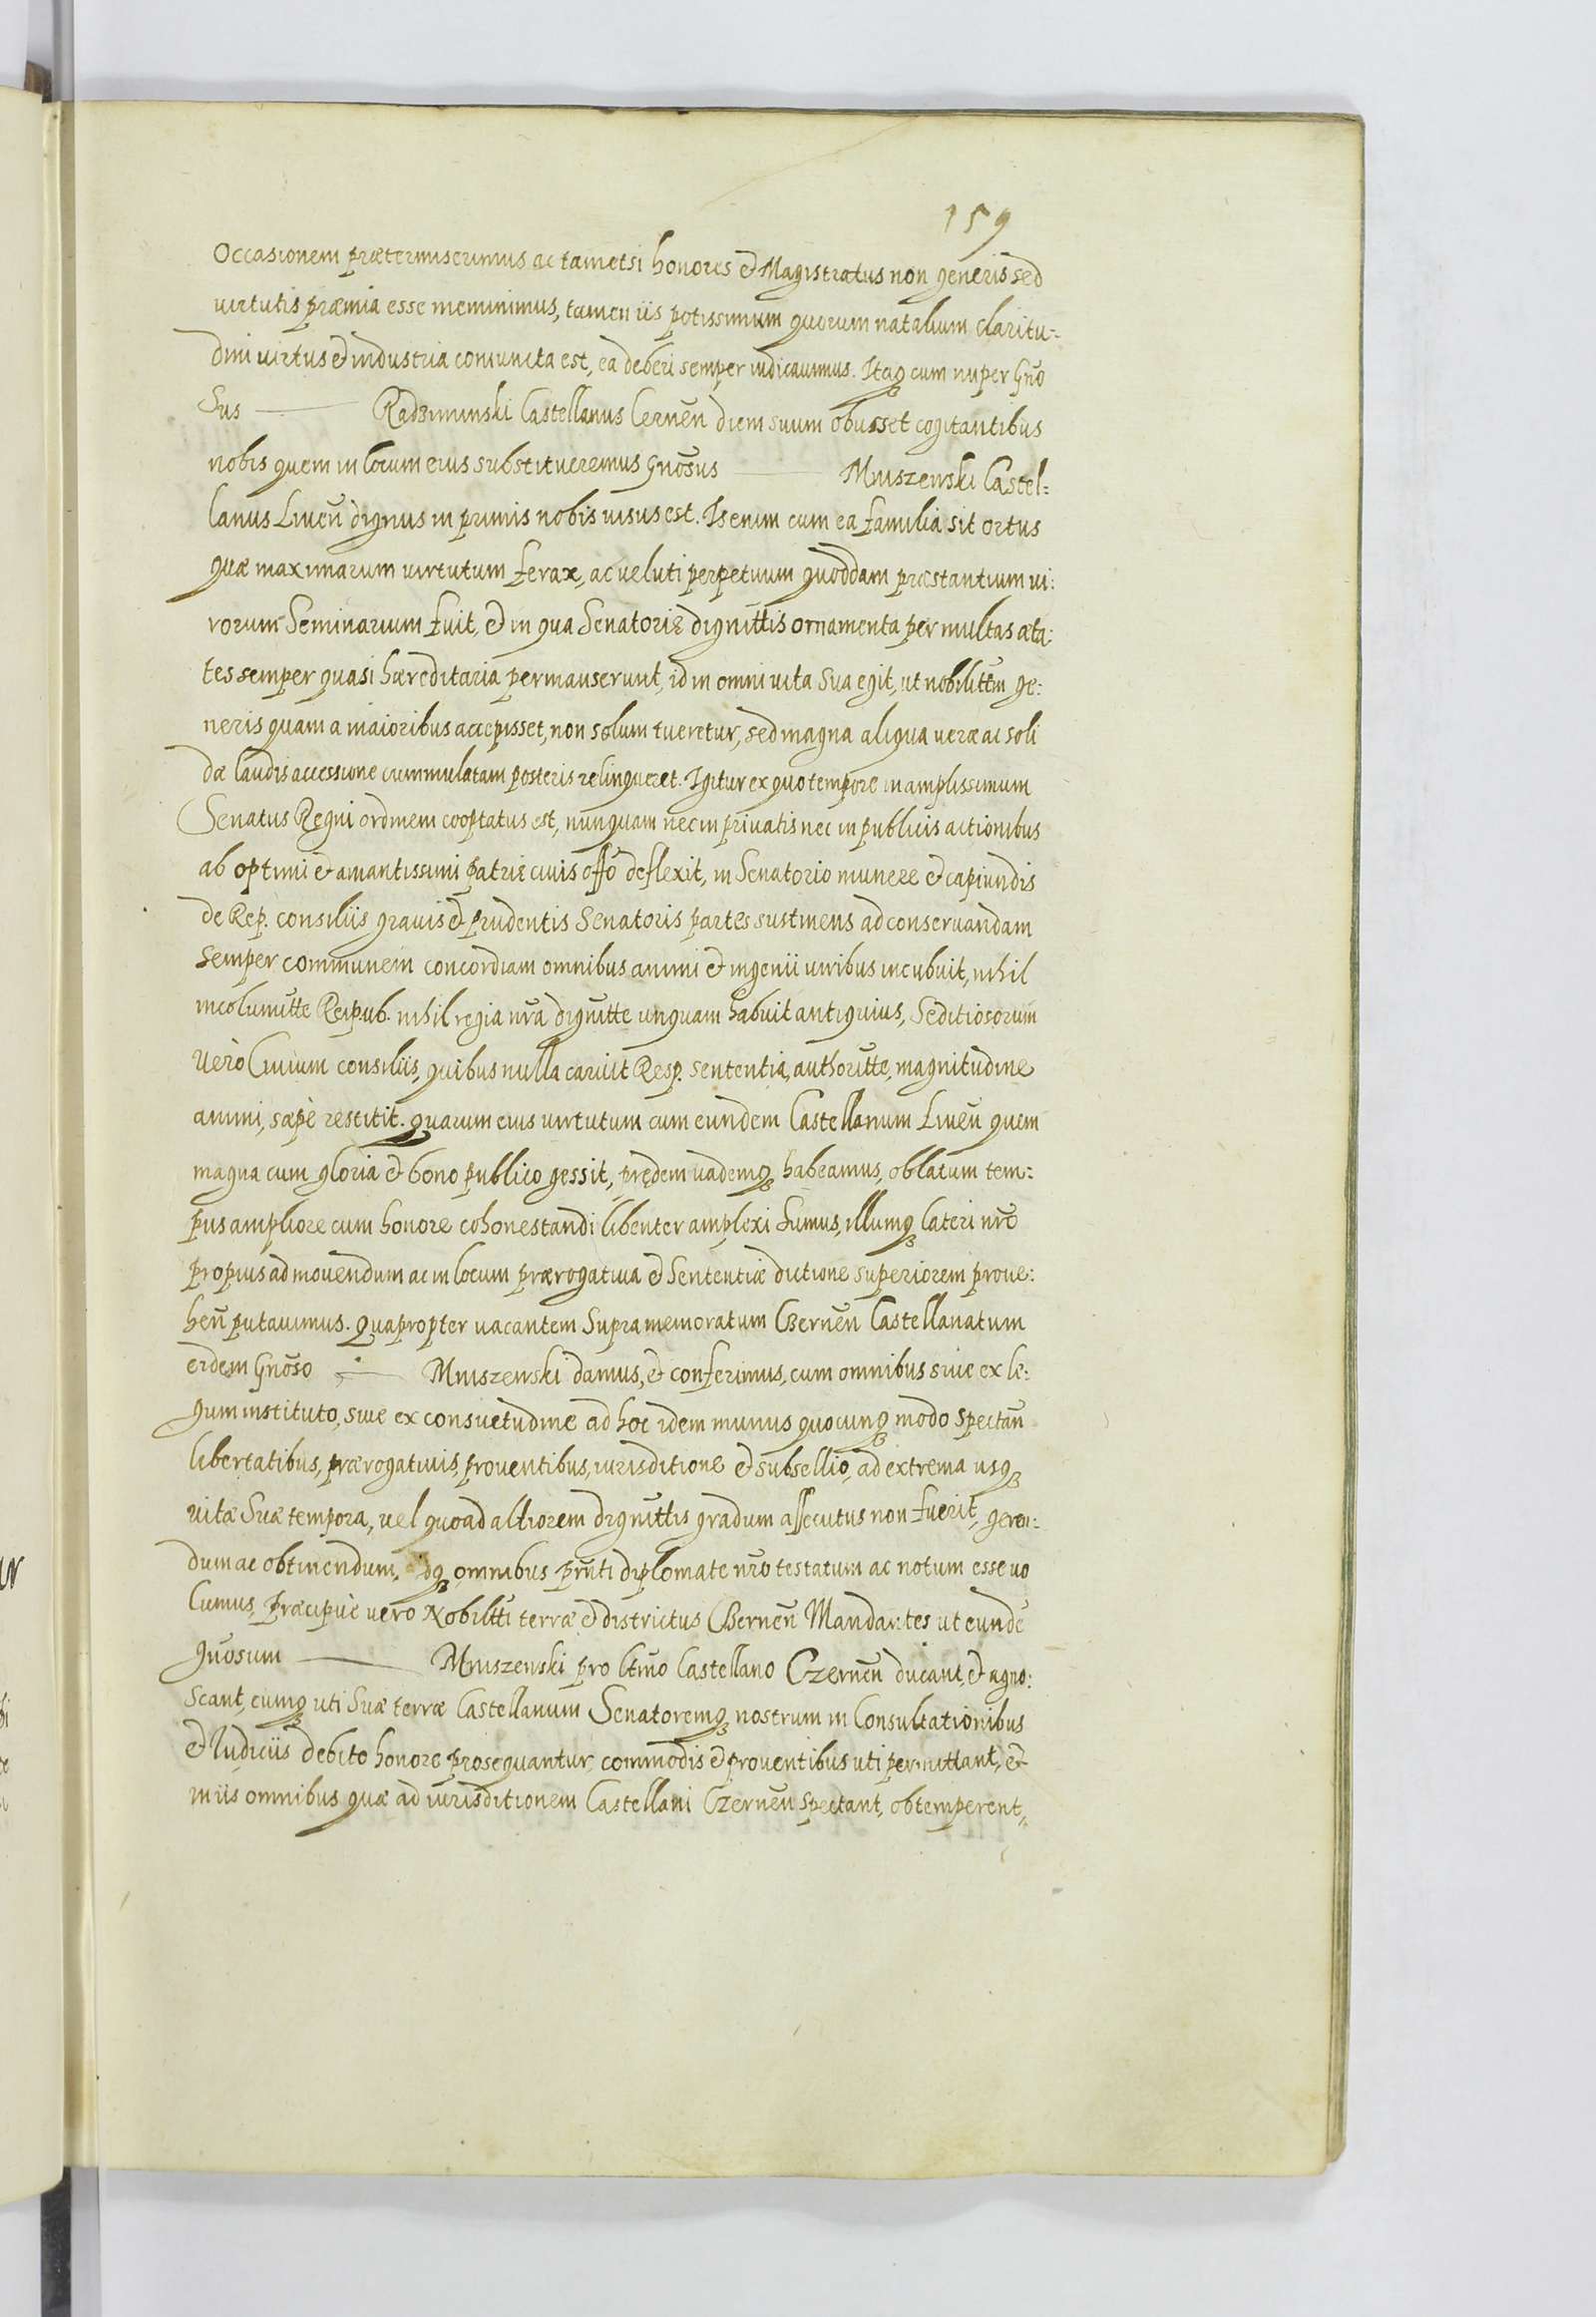 159
Occasionem prætermiserimus ac tametsi honores & Magistratus non generis sed
virtutis præmia esse meminimus, tamen iis potissimum quorum natalium claritu=
dini virtus & industria coniuncta est, ea deberi semper iudicauimus. Itaqȝ cum nuper Gño
sus — Radziminski Castellanus Cernen̄ diem suum obiisset cogitantibus
nobis quem in locum eius substitueremus Gnōsus — Mniszewski Castel=
lanus Liuen̄ dignus in primis nobis uisus est. Is enim cum ea familia sit ortus
quæ maximarum virtutum ferax, ac veluti perpetuum quoddam præstantium ui:
rorum Seminarium fuit, & in qua Senatoriȩ dignitt̄is ornamenta per multas æta:
tes semper quasi hæreditaria permanserunt, id in omni uita sua egit, ut nobilitt̄m ge:
neris quam a maioribus accepisset, non solum tueretur, sed magna aliqua veræ ac soli
dæ laudis accessione cummulatam posteris relinqueret. Igitur ex quo tempore in amplissimum
Senatus Regni ordinem cooptatus est, nunquam nec in priuatis nec in publicis actionibus
ab optimi & amantissimi patriȩ ciuis offō deflexit, in Senatorio munere & capiundis
de Rep. consiliis grauis & prudentis Senatoris partes sustinens ad conseruandam
semper communem concordiam omnibus animi & ingenii uiribus incubuit, nihil
incolumitt̄e Reipub. nihil regia nr̄a dignitt̄e unquam habuit antiquius, Seditiosorum
vèro Ciuium consiliis, quibus nulla caruit Resp. sententia, authoritt̄e, magnitudine
animi, sæpè restitit. quarum eius virtutum cum eundem Castellanum Liuen̄ quem
magna cum gloria & bono publico gessit, prȩdem uademqȝ habeamus, oblatum tem=
pus ampliore cum honore cohonestandi libenter amplexi sumus, illumqȝ lateri nr̄o
propius admouendum ac in locum prærogatiua & Sententiæ dictione superiorem proue:
hen̄ putauimus. Quapropter uacantem supramemoratum Czernen̄ Castellanatum
eidem Gnōso — Mniszewski damus, & conferimus, cum omnibus siue ex le:
gum instituto, siue ex consuetudine ad hoc idem munus quocunqȝ modo spectan̄
libertatibus, prærogatiuis, prouentibus, iurisditione & subsellio, ad extrema usqȝ
vitæ suæ tempora, vel quoad altiorem dignitt̄is gradum assecutus non fuerit, geren:
dum ac obtinendum, idqȝ omnibus prn̄ti diplomate nr̄o testatum ac notum esse uo
lumus, præcipuè vero Nobilitt̄i terræ & districtus Czernen̄ Mandantes ut eundē
gnōsum — Mniszewski pro ltm̄o Castellano Czernen̄ ducant, & agno:
scant, eumqȝ uti suæ terræ Castellanum Senatoremqȝ nostrum in Consultationibus
& Iudiciis debito honore prosequantur, commodis & prouentibus uti permittant, &
in iis omnibus quæ ad iurisditionem Castellani Czernen̄ spectant, obtemperent,